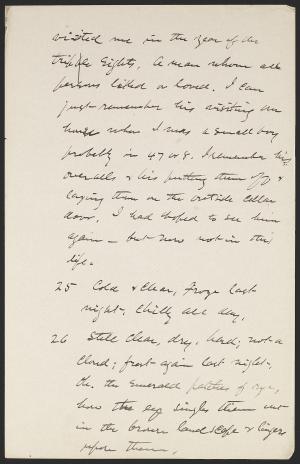 visited me in the year of the
triple Eights. A man whom all
persons liked or loved. I can
just remember his visiting our
house when I was a small boy
probably in 47 or 8. I remember his
overalls & his putting them off &
laying them on the outside cellar
door. I had hoped to see him
again – but now not in this
life.
25 Cold & clear, Froze last
night. Chilly all day.
26 Still clear, dry, hard; not a
cloud; frost again last night.
Oh, the emerald patches of rye,
how the eye singles them out
in the brown landscape & lingers
upon them.